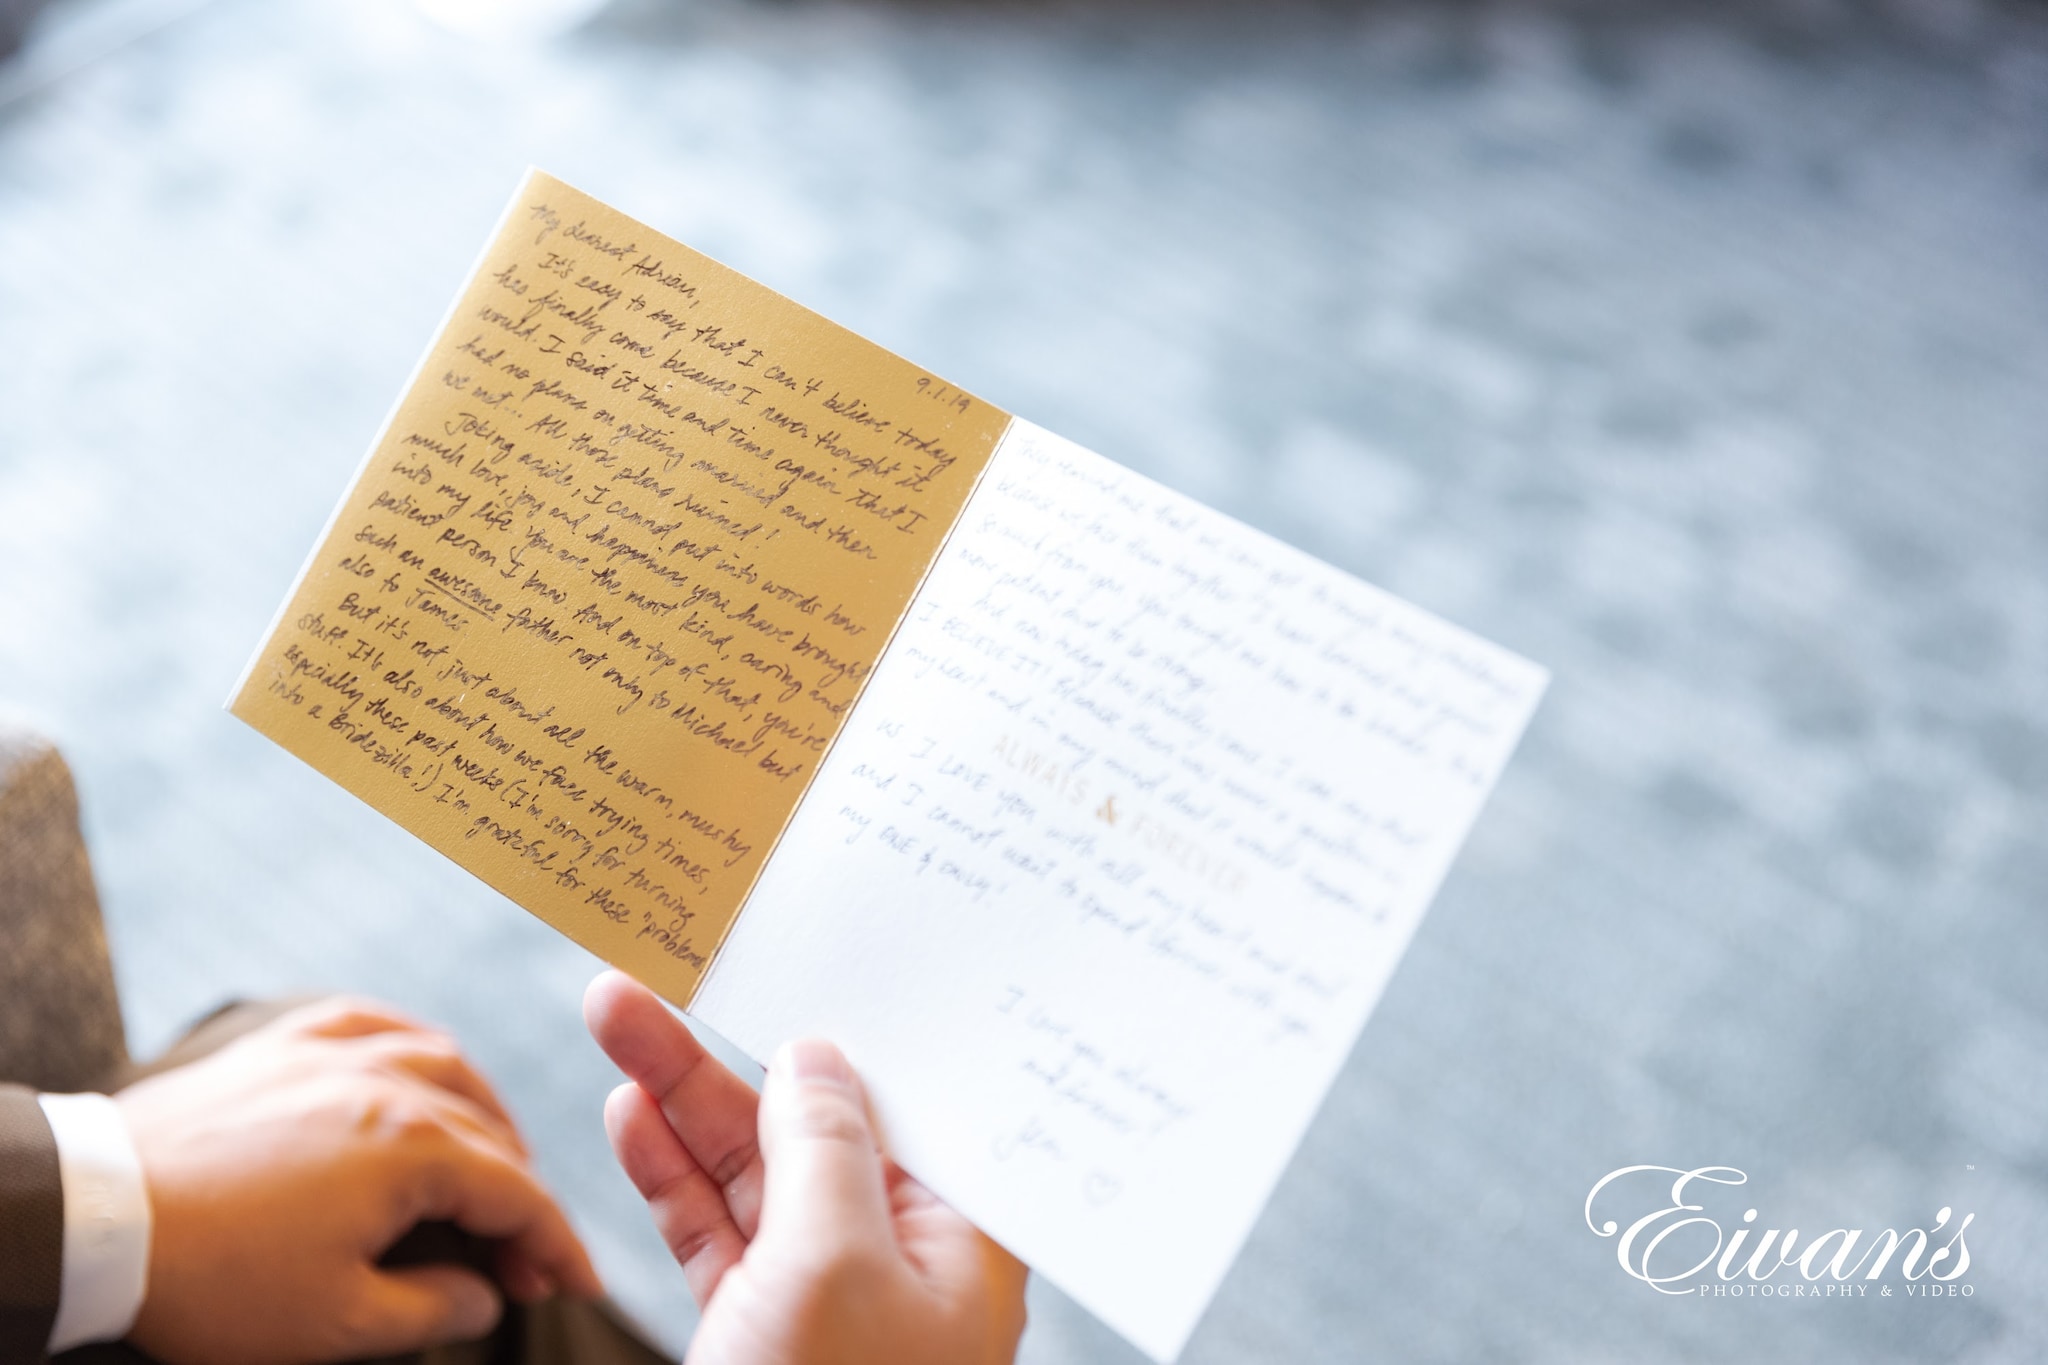 9.1.19
My dearest Adrian,
It's easy to say that I can't believe today
has finally come because I never thought it
would. I said it time and time again that I
had no plans on getting married and then
we met... All those plans ruined!
Joking aside, I cannot put into words how
much love, joy and happiness you have brought
into my life. You are the most kind, caring and
patient person I know. And on top of that, you're
such an awesome father not only to Michael but
also to James
But it's not just about all the warm, mushy
stuff. It's also about how we face trying times,
especially these past weeks (I'm sorry for turning
into a Bridezilla!) I'm grateful for these "problems
And now today has finally come. I can say that
I BELIEVE IT because there was never a question in
my heart and in my mind that it would happen to
us. I LOVE you with all my heart and soul
and I cannot wait to spend forever with you
my ONE & ONLY!
ALWAYS & FOREVER
I love you always
and forever!
Jen ♡
Eivan's™
PHOTOGRAPHY & VIDEO